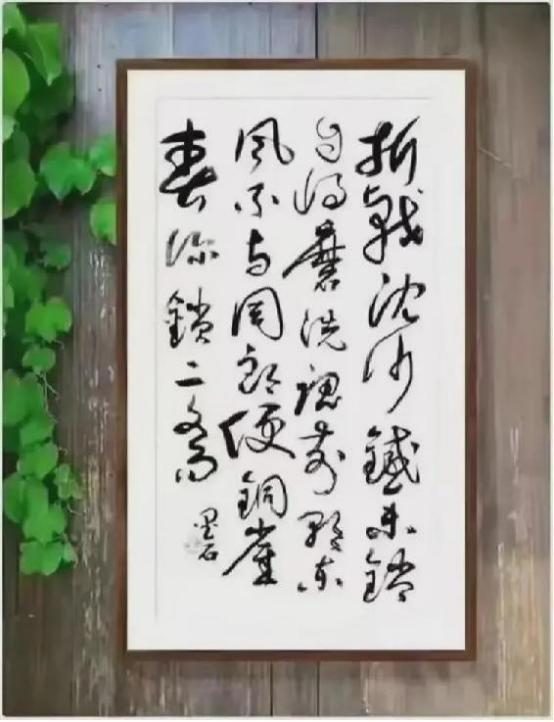 折戟沈沙鐵未銷
自將磨洗認前朝東
風不与周郎便銅雀
春深鎖二喬
墨石